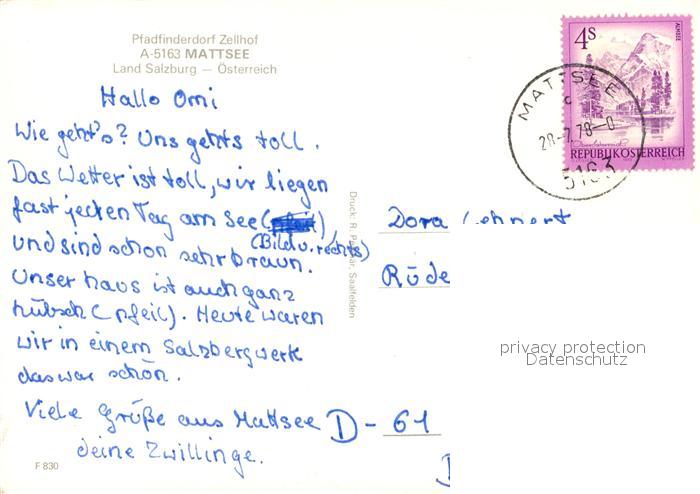 Pfadfinderdorf Zellhof
A-5163 MATTSEE
Land Salzburg — Österreich
Hallo Omi
Wie geht's? Uns gehts toll.
Das Wetter ist toll, wir liegen
fast jeden Tag am See
(Bild u. rechts)
und sind schon sehr braun.
Unser Haus ist auch ganz
hübsch (Pfeil). Heute waren
wir in einem Salzbergwerk
das war schön.
Viele Grüße aus Mattsee
deine Zwillinge.
F 830
Druck: R. Saalfelden
4S
ALMSEE
REPUBLIK ÖSTERREICH
MATTSEE
28-7.78-0
5163
Dora Lehnert
Rüde
D-61
privacy protection
Datenschutz